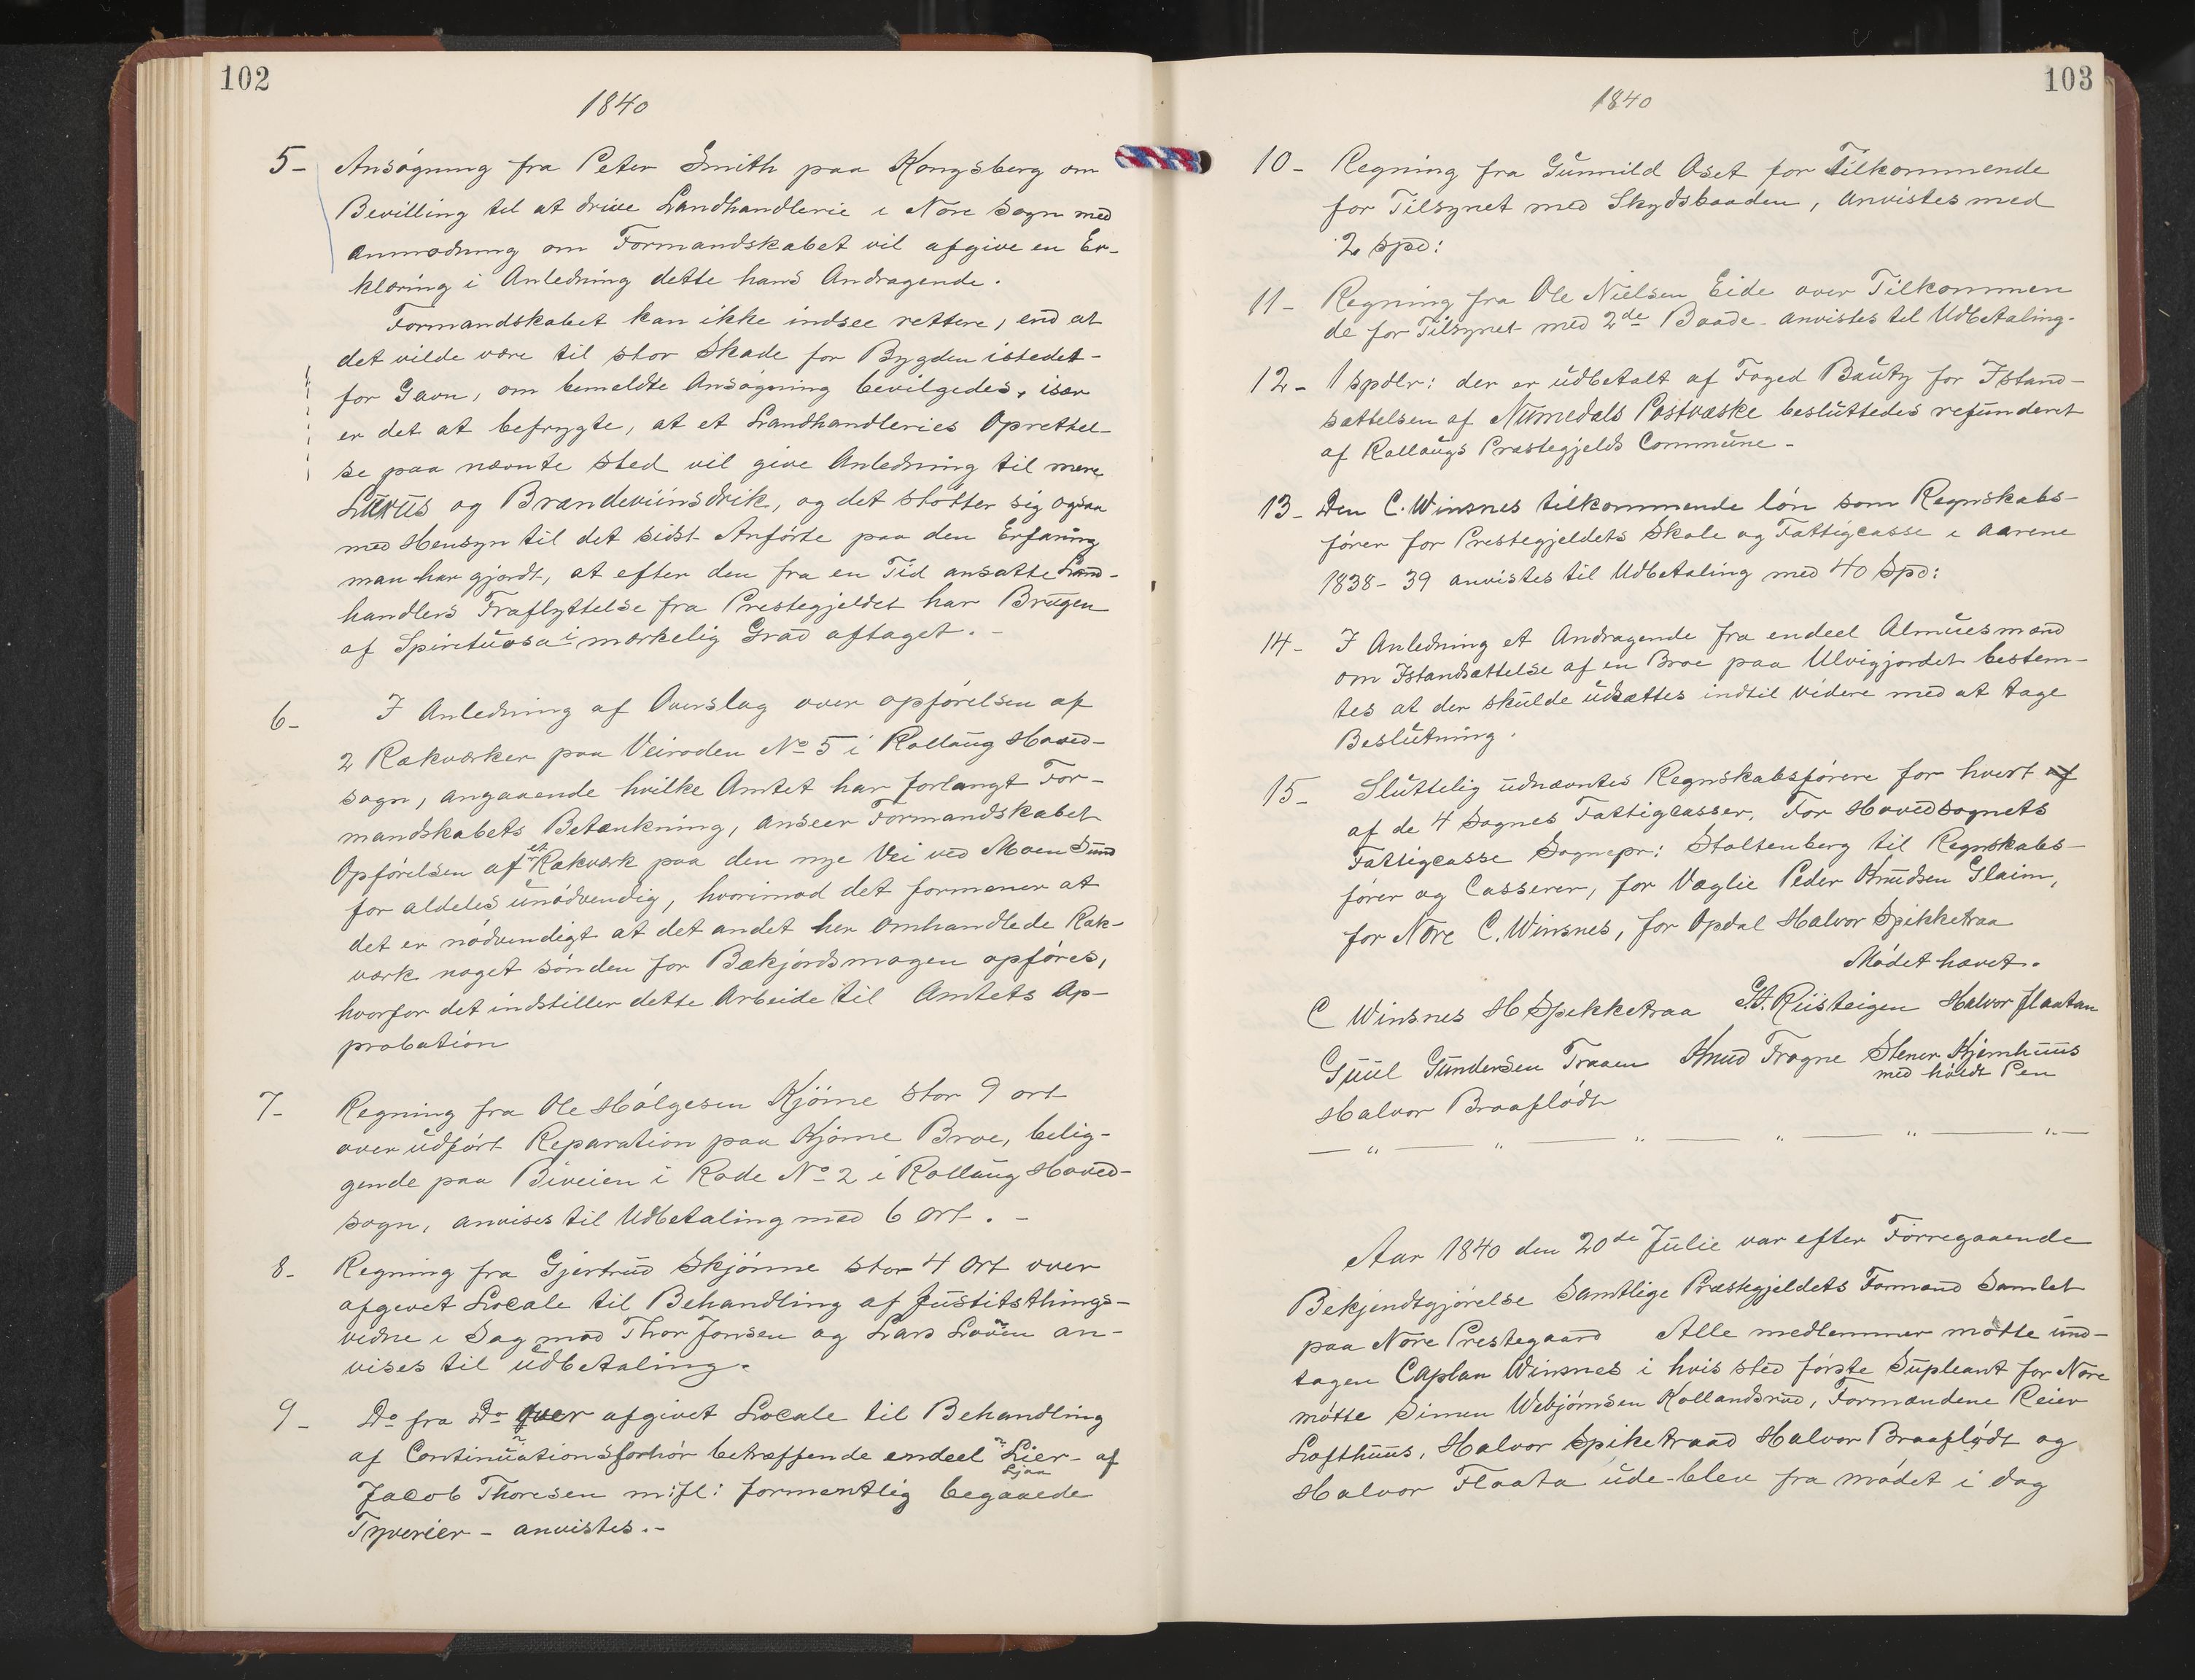 102
1840
5- Ansøgning fra Peter Smith paa Kongsberg om
Bevilling til at drive Landhandlerie i Nore Sogn med
Anmodning om Formandskabet vil afgive en Er-
klæring i Anledning dette hans Andragende.
Formandskabet kan ikke indsee rettere, end at
det vilde være til stor Skade for Bygden istedet-
for Gavn, om bemeldte Ansøgning bevilgedes, især
er det at befrygte, at et Landhandleries Oprettel-
se paa nævnte sted vil give Anledning til mere
Luxus og Brændeviinsdrik, og det støtter sig ogsaa
med Hensyn til det sidst Anførte paa den Erfaring
man har gjordt, at efter den fra en Tid ansatte Land-
handlers Fraflyttelse fra Prestegjeldet har Brugen
af Spirituosa i mærkelig Grad aftaget. -
6- I Anledning af Overslag over opførelsen af
2 Rækværker paa Veiroden No 5 i Rollaug Hoved-
sogn, angaaende hvilke Amtet har forlangt For-
mandskabets Betænkning, anseer Formandskabet
Opførelsen af et Rækværk paa den nye Vei ved Moen Sund
for aldeles unødvendig, hvorimod det formener at
det er nødvendigt at det andet her omhandlede Ræk-
værk noget sønden for Bækjordsmogen opføres,
hvorfor det indstiller dette Arbeide til Amtets Ap-
probation
7- Regning fra Ole Hølgesen Kjøme stor 9 ort
over udført Reparation paa Kjøme Broe, belig-
gende paa Biveien i Rode No 2 i Rollaug Hoved-
sogn, anvises til Udbetaling med 6 Ort. -
8- Regning fra Gjertrud Skjønne stor 4 Ort over
afgevet Locale til Behandling af Justitsthings-
vidne i Sag mod Thor Jonsen og Lars an-
vises til udbetaling.
9- Do fra Do over afgivet Locale til Behandling
af Continuationsforhør betræffende endeel Lier- af
Ljaa
Jacob Thoresen m:fl: formentlig begaaede
Tyverier - anvistes.-
103
1840
10- Regning fra Gunnild Aset for Tilkommende
for Tilsynet med Skydsbaaden, anvistes med
2 Spd:
11- Regning fra Ole Nielsen Eide over Tilkommen
de for Tilsynet med 2de Baade - anvistes til Udbetaling.
12- 1 Spdlr: der er udbetalt af Foged Bautz for Istand-
sættelsen af Numedals Postvæske besluttedes refunderet
af Rollaugs Præstegjelds Commune -
13- Den C. Winsnes tilkommende løn som Regnskabs-
fører for Prestegjeldets Skole og Fattigcasse i Aarene
1838-39 anvistes til Udbetaling med 40 Spd:
14- I Anledning et Andragende fra endeel Almuesmænd
om Istandsættelse af en Broe paa Ulvigjordet bestem-
tes at der skulde udsættes indtil videre med at tage
Beslutning.
15- Sluttelig udnævntes Regnskabsførere for hvert af
af de 4 Sognes Fattigcasser. For Hovedsognets
Fattigcasse Sognepr: Stoltenberg til Regnskabs-
fører og Casserer, for Væglie Peder Knudsen Glaim,
for Nore C. Winsnes, for Opdal Halvor Spikketraa
Mødet hævet.
C Winsnes H Spikketraa G.A. Riisteigen Halvor Flaatan
Guul Gundersen Traaen Knud Frogne Stener Kjemhuus
med holdt Pen
Halvor Braaflødt
— " — " — " — " — " — " —
Aar 1840 den 20de Julie var efter Førregaaende
Bekjendtgjørelse Samtlige Præstegjeldets Formænd Samlet
paa Nore Prestegaard Alle medlemmer møtte und-
tagen Caplan Winsnes i hvis sted første Supleant for Nore
møtte Simen Webjørnsen Kollandsrud, Formændene Reier
Lofthuus, Halvor Spiketraad Halvor Braaflødt og
Halvor Flaata ude-blev fra mødet i dag